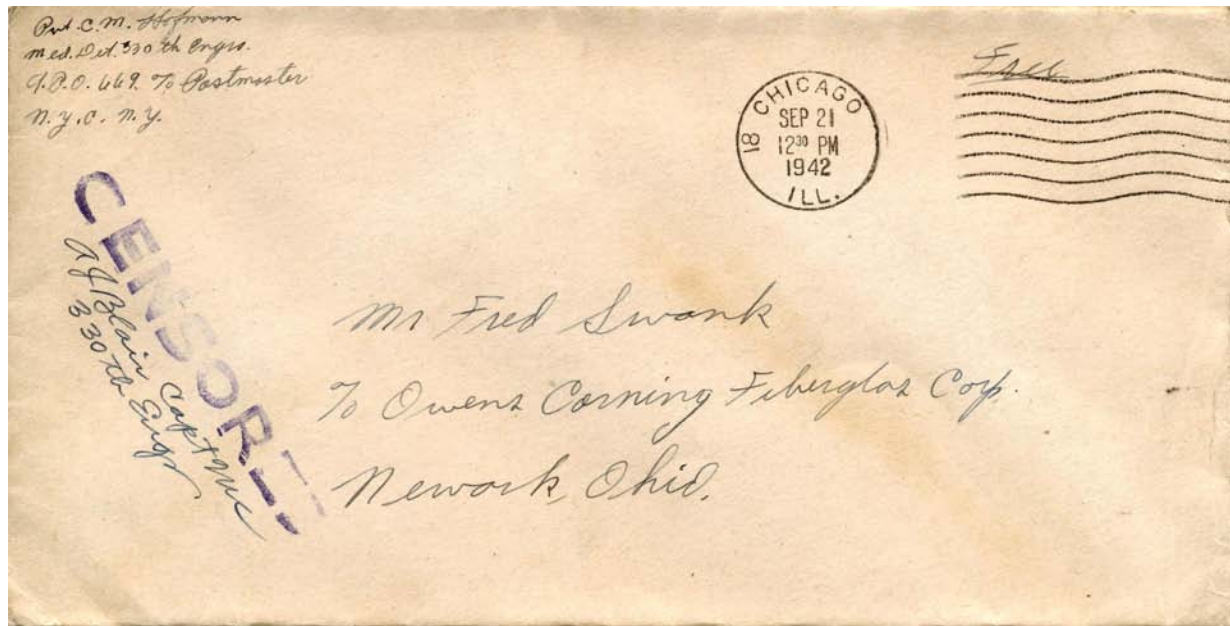 Pvt. C. M. Hofmann
Med. Det. 330 th Engrs.
A.P.O. 669. % Postmaster
N.Y.C. N.Y.
Free
18 CHICAGO
SEP 21
12 30 PM
1942
ILL.
CENSORED
A J Blair Capt MC
330th Engr
Mr Fred Swank
% Owens Corning Fiberglas Corp.
Newark, Ohio.